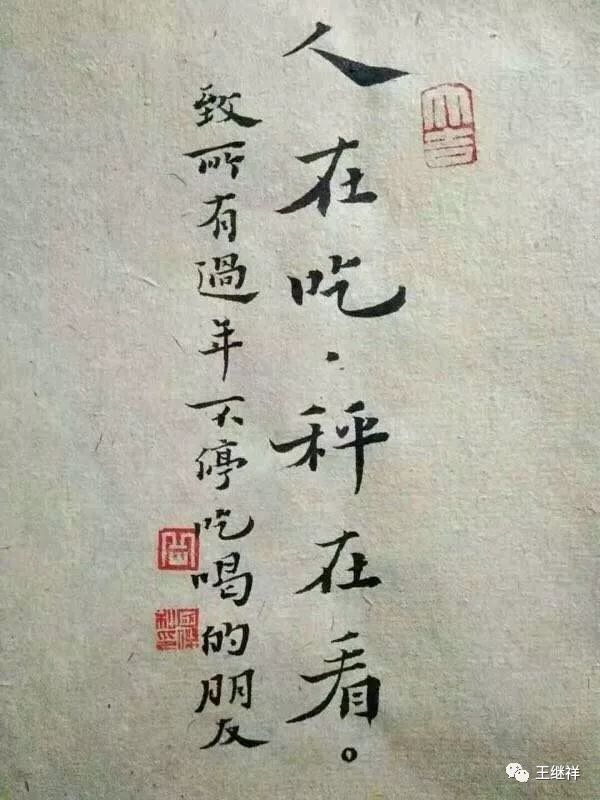 人在吃·秤在看。
致所有過年不停吃喝的朋友
王继祥